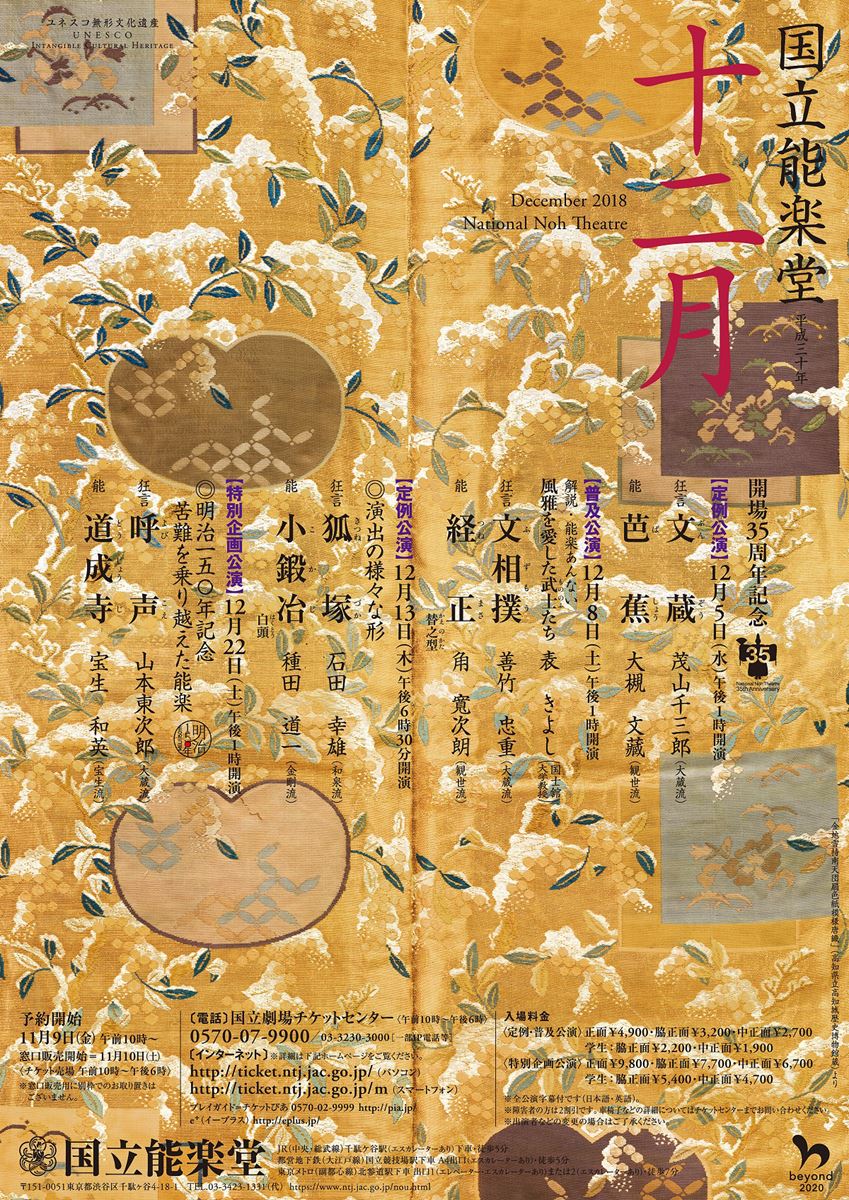 ユネスコ無形文化遺産
UNESCO
INTANGIBLE CULTURAL HERITAGE
国立能楽堂
平成三十年
十二月
December 2018
National Noh Theatre
開場35周年記念
35
National Noh Theatre
35th Anniversary
【定例公演】12月5日(水)午後1時開演
狂言 文蔵 ぶんぞう 茂山千三郎(大蔵流)
能 芭蕉 ばしょう 大槻 文藏(観世流)
【普及公演】12月8日(土)午後1時開演
解説・能楽あんない
風雅を愛した武士たち もののふ 表 きよし(国士舘大学教授)
狂言 文相撲 ふずもう 善竹 忠重(大蔵流)
能 経正 つねまさ 替之型 かえのかた 角 寛次朗(観世流)
【定例公演】12月13日(木)午後6時30分開演
◎演出の様々な形
狂言 狐塚 きつねづか 石田 幸雄(和泉流)
能 小鍛冶 こかじ 白頭 はくとう 種田 道一(金剛流)
【特別企画公演】12月22日(土)午後1時開演
◎明治一五〇年記念
苦難を乗り越えた能楽
明治
狂言 呼声 よびこえ 山本東次郎(大蔵流)
能 道成寺 どうじょうじ 宝生 和英(宝生流)
「金地雪持南天団扇色紙模様唐織」(高知県立高知城歴史博物館蔵)より
予約開始
11月9日(金)午前10時〜
窓口販売開始=11月10日(土)
〈チケット売場 午前10時〜午後6時〉
※窓口販売用に別枠でのお取り置きは
ございません。
〔電話〕国立劇場チケットセンター〈午前10時〜午後6時〉
0570-07-9900 03-3230-3000[一部IP電話等]
〔インターネット〕※詳細は下記ホームページをご覧ください。
http://ticket.ntj.jac.go.jp/(パソコン)
http://ticket.ntj.jac.go.jp/m(スマートフォン)
プレイガイド=チケットぴあ 0570-02-9999 http://pia.jp/
e+(イープラス) http://eplus.jp/
入場料金
〈定例・普及公演〉正面¥4,900・脇正面¥3,200・中正面¥2,700
学生:脇正面¥2,200・中正面¥1,900
〈特別企画公演〉正面¥9,800・脇正面¥7,700・中正面¥6,700
学生:脇正面¥5,400・中正面¥4,700
※全公演字幕付です(日本語・英語)。
※障害者の方は2割引です。車椅子などの詳細についてはチケットセンターまでお問い合わせください。
※出演者などの変更の場合はご了承ください。
国立能楽堂
JR(中央・総武線)千駄ケ谷駅(エスカレーターあり)下車・徒歩5分
都営地下鉄(大江戸線)国立競技場駅下車 A4出口(エスカレーターあり)・徒歩5分
東京メトロ(副都心線)北参道駅下車 出口1(エレベーター・エスカレーターあり)または2(エスカレーターあり)・徒歩7分
〒151-0051東京都渋谷区千駄ヶ谷4-18-1 TEL.03-3423-1331(代) https://www.ntj.jac.go.jp/nou.html
beyond
2020